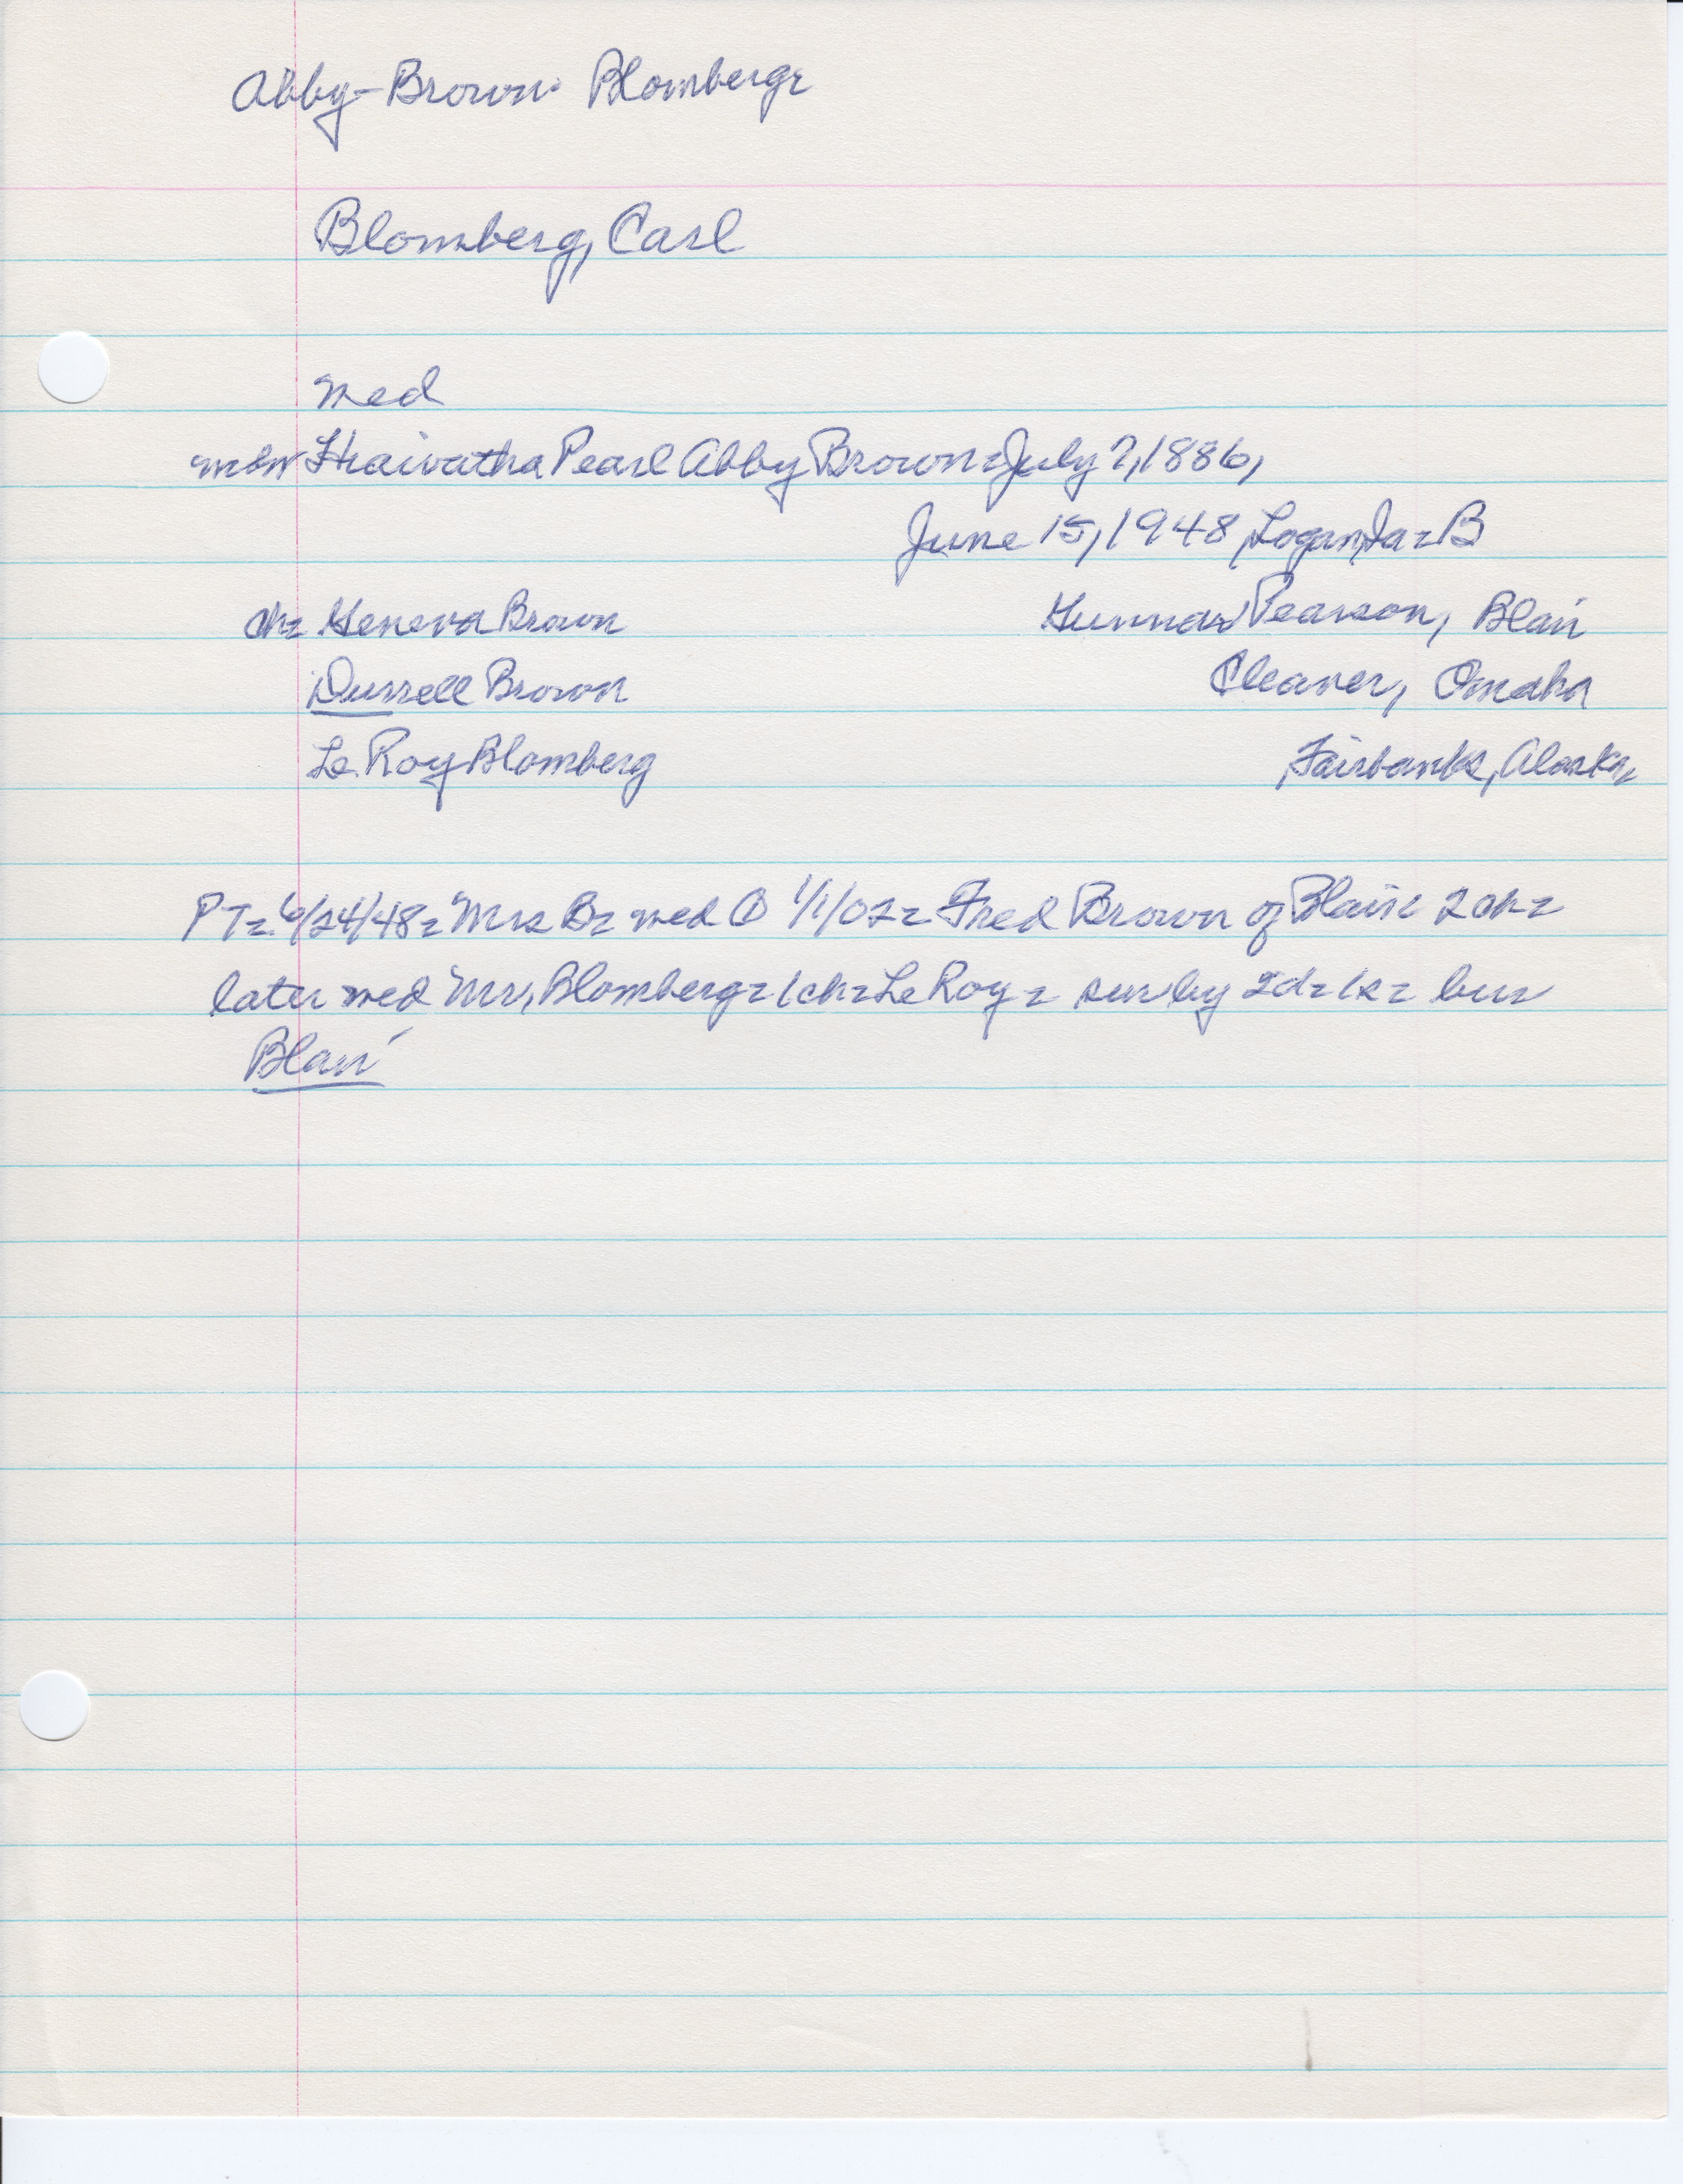 Abby-Brown- Blomberg=
Blomberg, Carl
med
Haiwatha Pearl Abby Brown=July 7, 1886,
June 15, 1948, Logan, Ia=B
ch= Geneva Brown Gunnar Pearson, Blair
Durrell Brown Cleaver, Omaha
Le Roy Blomberg Fairbanks, Alaska
PT= 6/24/48= Mrs B= med ① 1/1/02= Fred Brown of Blair 2 ch=
later med Mr. Blomberg= 1 ch= Le Roy= sur by 2d= 1s= bur
Blair